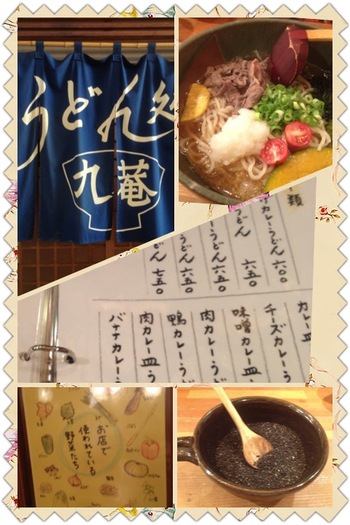 うどん処
九菴
類
カレーうどん 六〇〇
うどん 六五〇
うどん 六五〇
うどん 七五〇
カレー皿
チーズカレーう
味噌カレーう
肉カレーうど
鴨カレーうど
肉カレー皿う
バナナカレーう
お店で
使われている
野菜たち